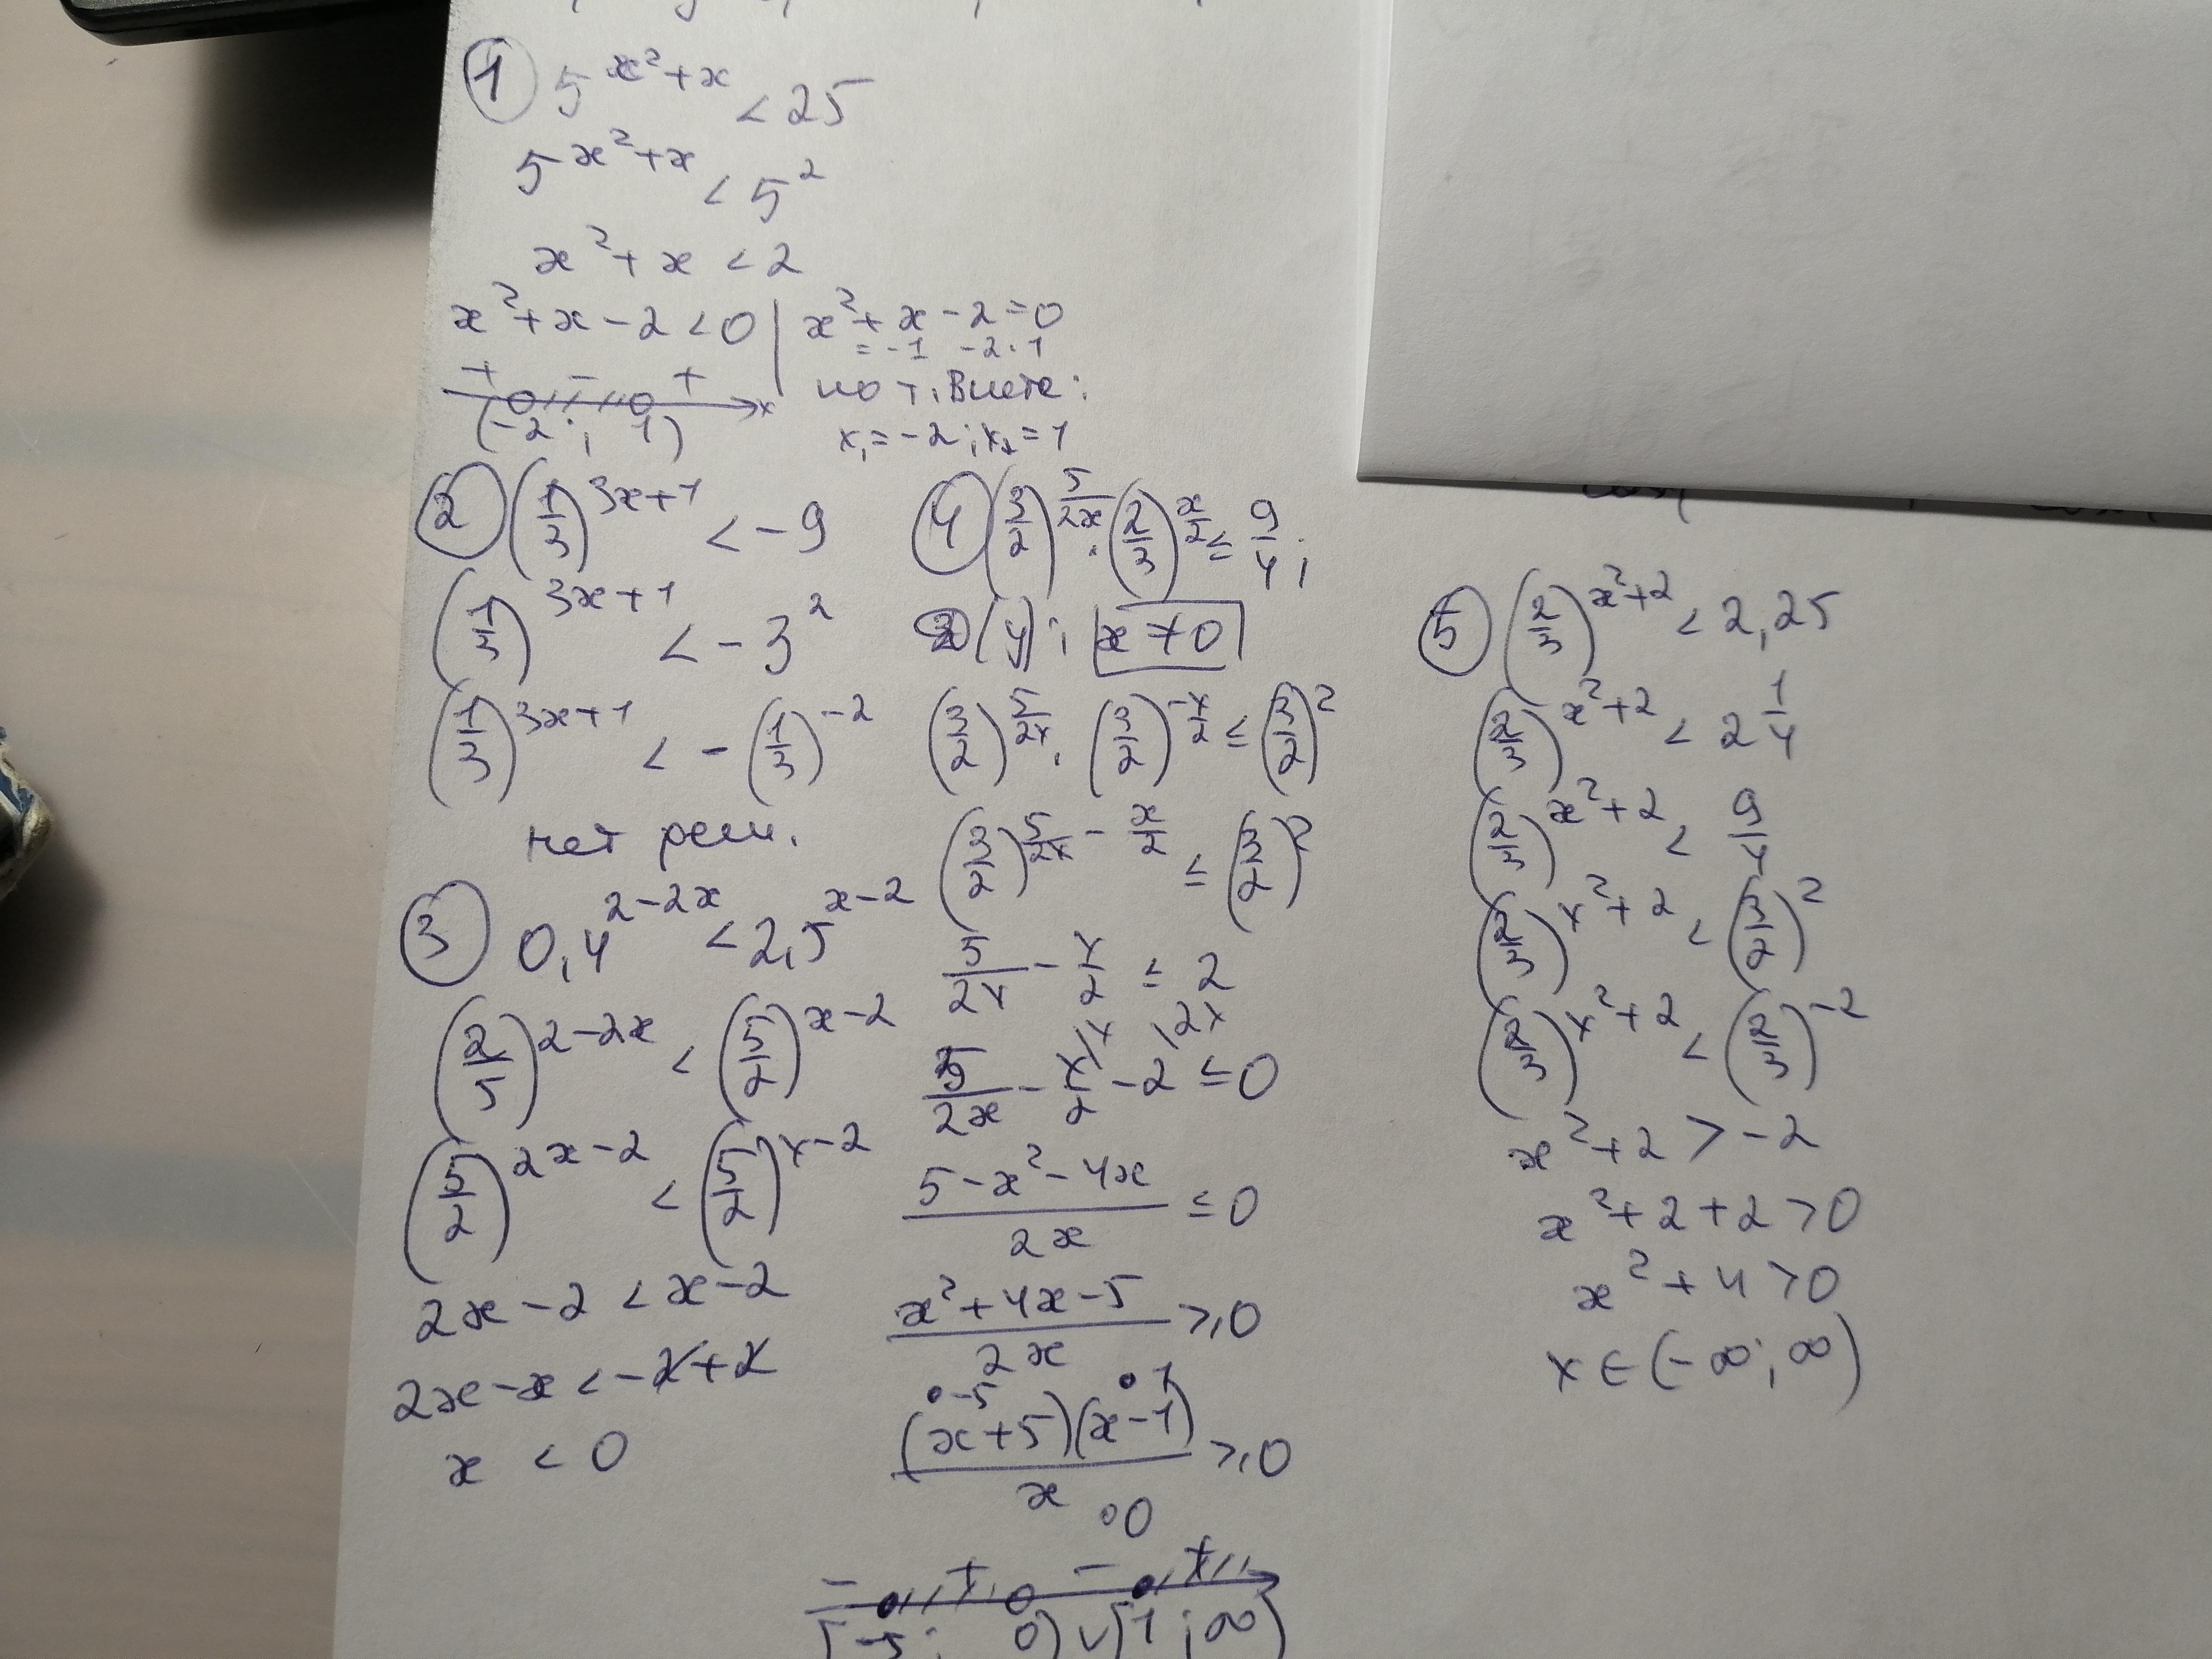 ① 5^(x²+x) < 25
5^(x²+x) < 5²
x² + x < 2
x² + x - 2 < 0 | x² + x - 2 = 0
= -1 -2·1
по т. Виета:
x₁ = -2; x₂ = 1
+ - + x
(-2; 1)
② (1/3)^(3x+1) < -9
(1/3)^(3x+1) < -3²
(1/3)^(3x+1) < -(1/3)^(-2)
нет реш.
③ 0,4^(2-2x) < 2,5^(x-2)
(2/5)^(2-2x) < (5/2)^(x-2)
(5/2)^(2x-2) < (5/2)^(x-2)
2x - 2 < x - 2
2x - x < -2 + 2
x < 0
④ (3/2)^(5/2x) · (2/3)^(x/2) ≤ 9/4;
(y): x ≠ 0
(3/2)^(5/2x) · (3/2)^(-x/2) ≤ (3/2)²
(3/2)^(5/2x - x/2) ≤ (3/2)²
5/2x - x/2 ≤ 2
5/2x - x/2 - 2 ≤ 0
(5 - x² - 4x)/2x ≤ 0
(x² + 4x - 5)/2x ≥ 0
• -5 • 1
(x+5)(x-1)/x ≥ 0
∘0
- + - +
[-5; 0) ∪ [1; ∞)
⑤ (2/3)^(x²+2) < 2,25
(2/3)^(x²+2) < 2 1/4
(2/3)^(x²+2) < 9/4
(2/3)^(x²+2) < (3/2)²
(2/3)^(x²+2) < (2/3)^(-2)
x² + 2 > -2
x² + 2 + 2 > 0
x² + 4 > 0
x ∈ (-∞; ∞)